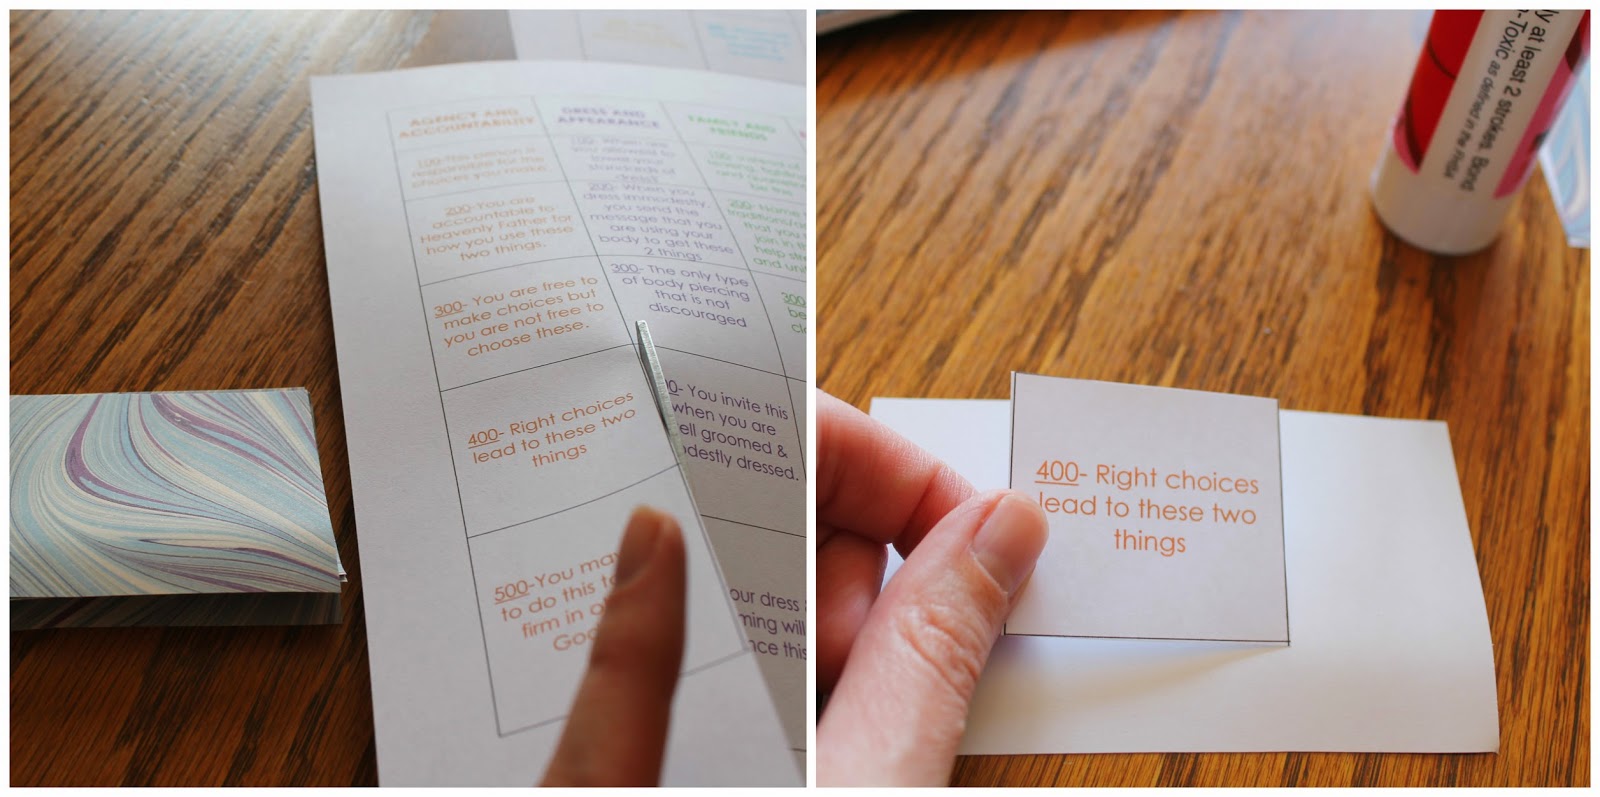 AGENCY AND
ACCOUNTABILITY
100-This person is
responsible for the
choices you make
200-You are
accountable to
Heavenly Father for
how you use these
two things.
300- You are free to
make choices but
you are not free to
choose these.
400- Right choices
lead to these two
things
500-You may
to do this
firm in
DRESS AND
APPEARANCE
100- When are
you allowed to
lower your
standards of
dress?
200- When you
dress immodestly,
you send the
message that you
are using your
body to get these
2 things
300- The only type
of body piercing
that is not
discouraged
0- You invite this
when you are
ell groomed &
destly dressed.
our dress
ming will
nce this
FAMILY AND
FRIENDS
100- Instead of
and
be the
200- Name
that you
join in
help
and
300
be
400- Right choices
lead to these two
things
ly at least 2 strokes. Bond
-Toxic as defined in the